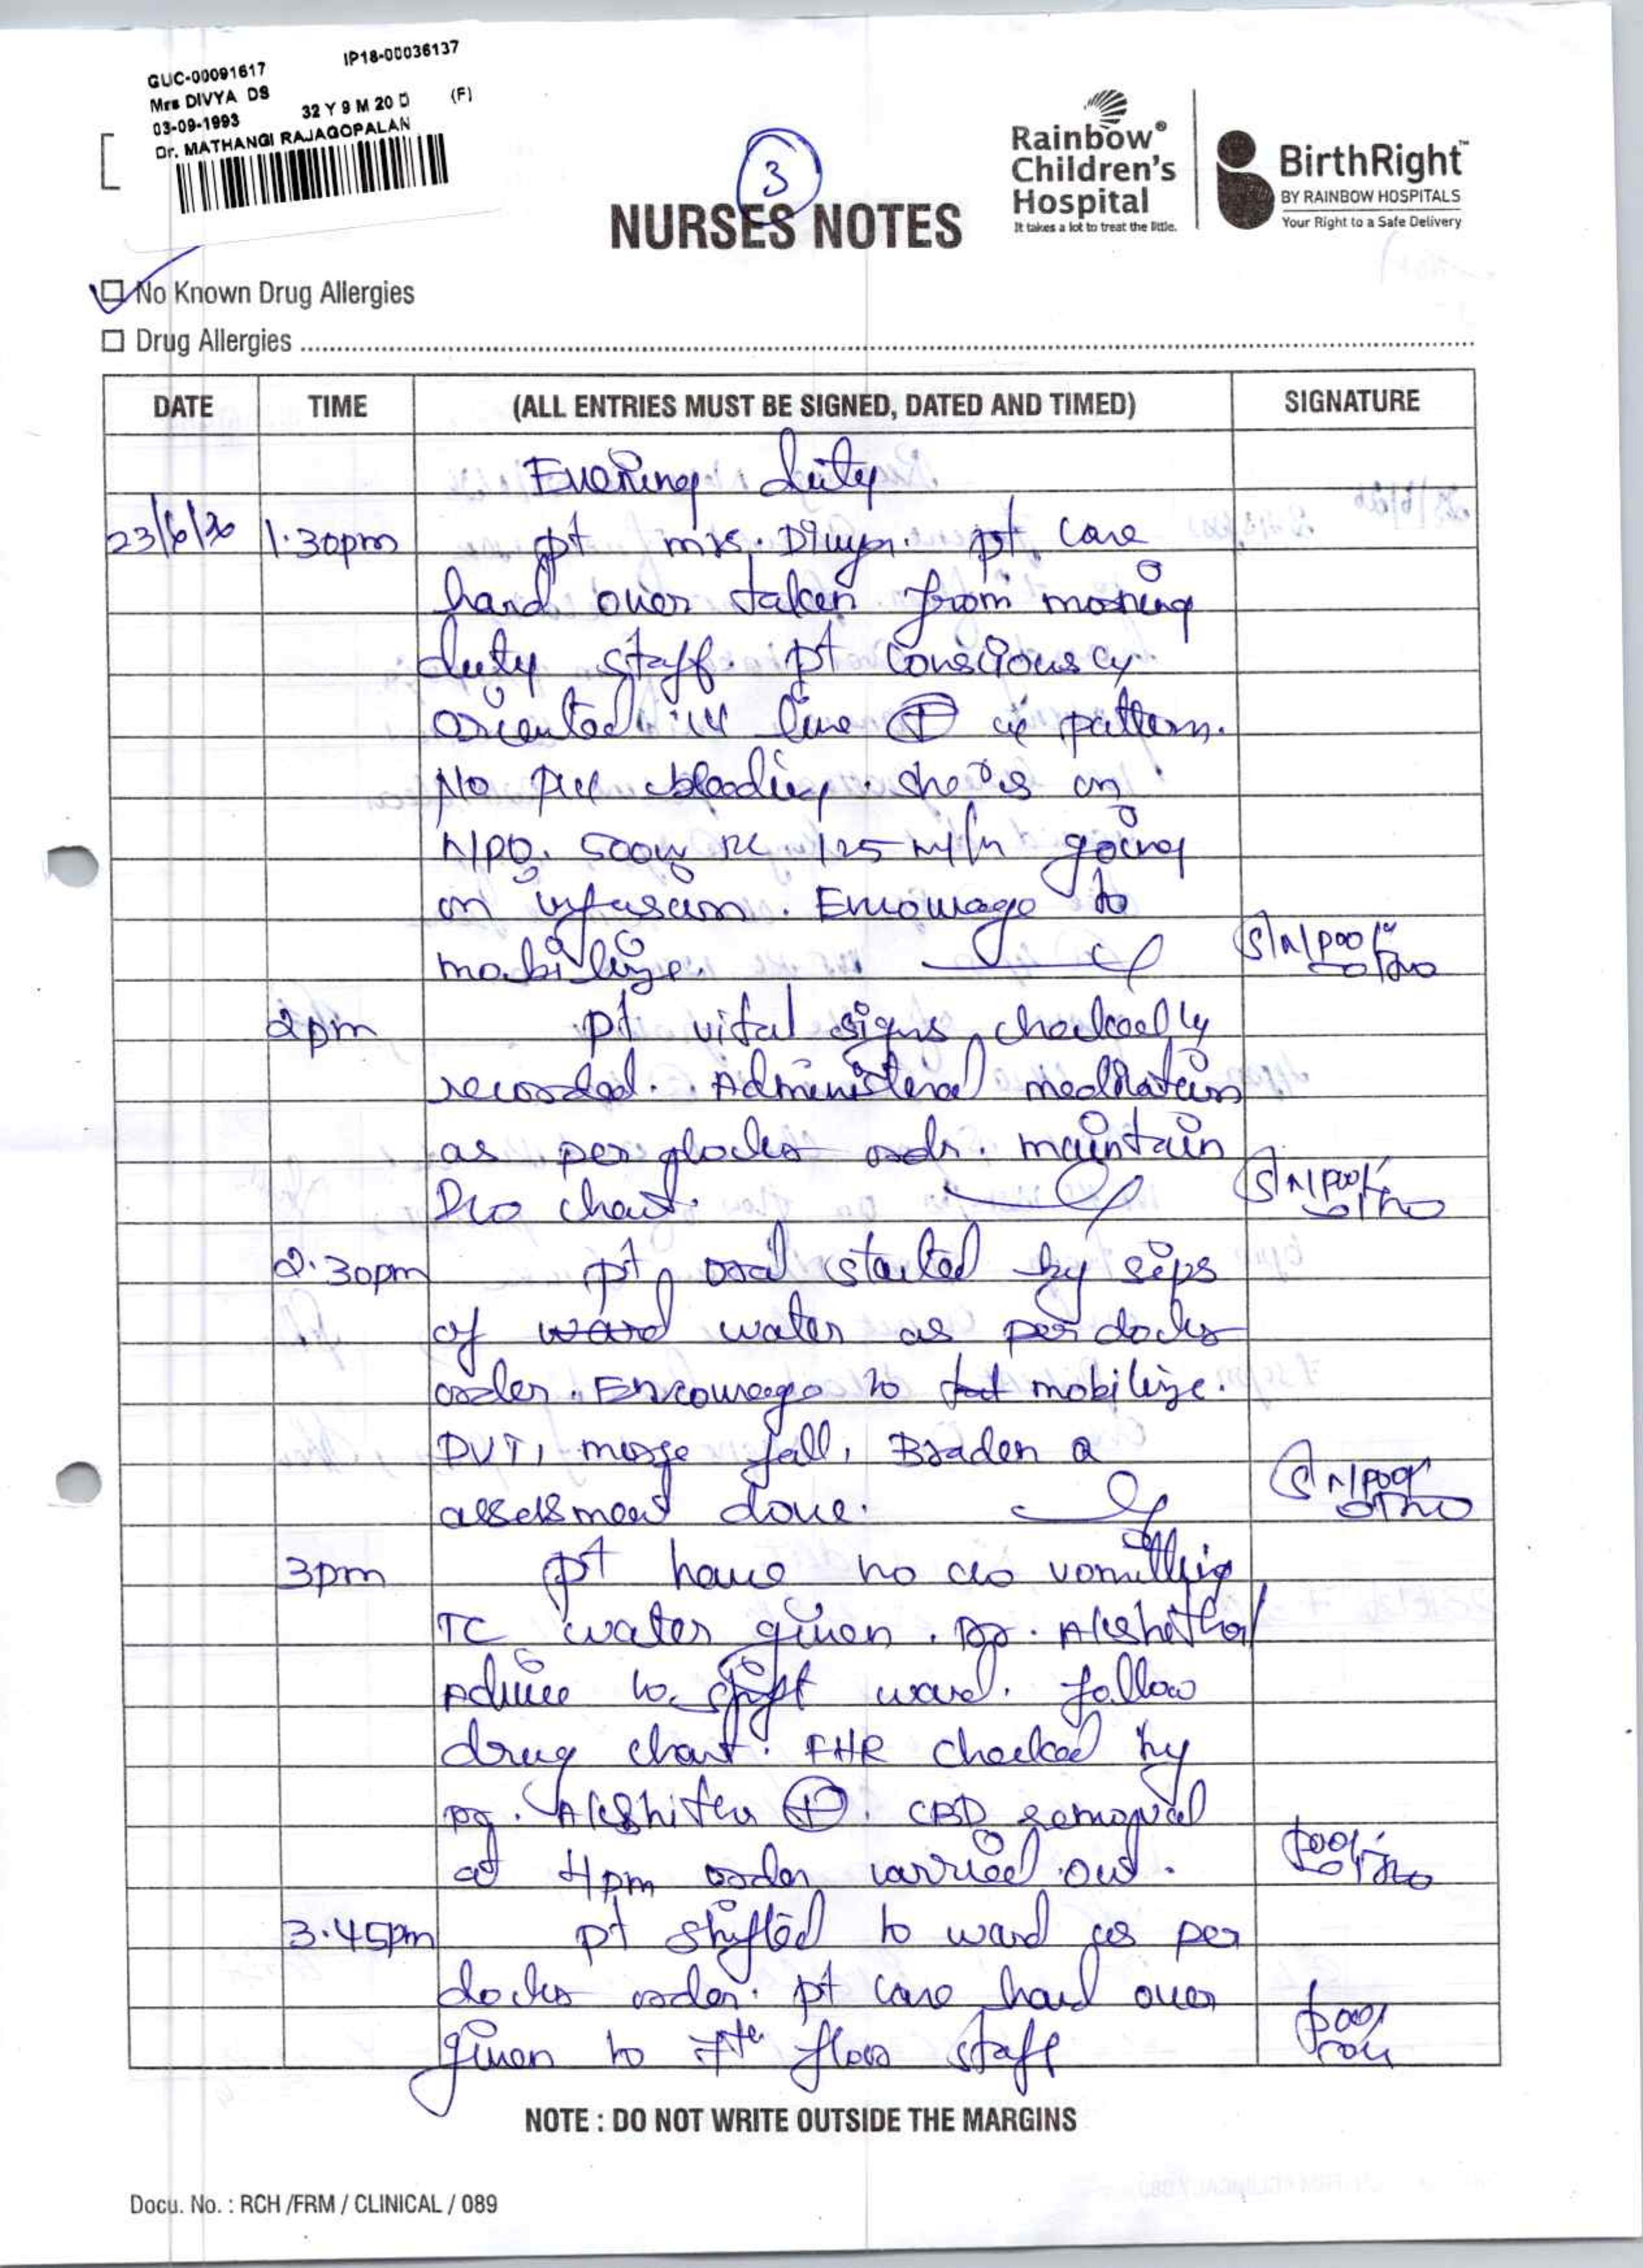 GUC-00091617 IP18-00036137
Mrs DIVYA DS
03-09-1993 32 Y 9 M 20 D (F)
Dr. MATHANGI RAJAGOPALAN
3
NURSES NOTES
Rainbow®
Children's
Hospital
It takes a lot to treat the little.
BirthRight™
BY RAINBOW HOSPITALS
Your Right to a Safe Delivery
No Known Drug Allergies
Drug Allergies
DATE TIME (ALL ENTRIES MUST BE SIGNED, DATED AND TIMED) SIGNATURE
Evening duty
23/6/26 1.30pm pt mrs. Divya. pt care
hand over taken from morning
duty staff. pt Consciously
oriented. IV line ⊕ pattern.
No bleeding. she is on
NPO. 500ml RL 125 ml/hr going
on infusion. Encourage to
mobilize.
2pm pt vital signs checkedly
recorded. Administered medication
as per docter order. maintain
I/O chart.
2.30pm pt oral started by sips
of ward water as per docter
order. Encourage to mobilize.
DVT, morse fall, Braden Q
assessment done.
3pm pt have no c/o vomitting
TC water given. Dr. Akshitha
Advice to shift ward. follow
drug chart. FHR checked by
Dr. Akshitha ⊕. CBD removal
at 4pm order carried out.
3.45pm pt shifted to ward as per
docter order. pt care hand over
given to 7th floor staff
NOTE : DO NOT WRITE OUTSIDE THE MARGINS
Docu. No. : RCH /FRM / CLINICAL / 089